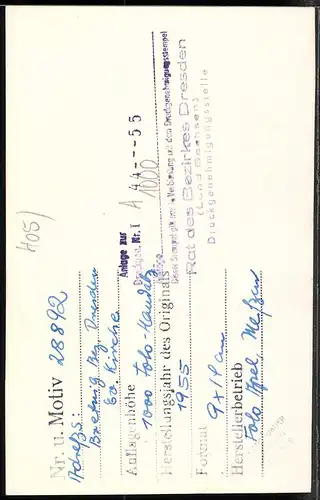 405)
Nr. u. Motiv 28892
Bretnig Bz. Dresden
Ev. Kirche
Auflagenhöhe
1000 Foto-Handabz.
Herstellungsjahr des Originals
1955
Format 9x14 cm
Herstellerbetrieb
Foto
Anlage zur
Nr. I
A 44---55
1000
Dieser Stempel gilt nur in Verbindung mit dem Druckgenehmigungsstempel
Rat des Bezirkes Dresden
(Land Sachsen)
Druckgenehmigungsstelle